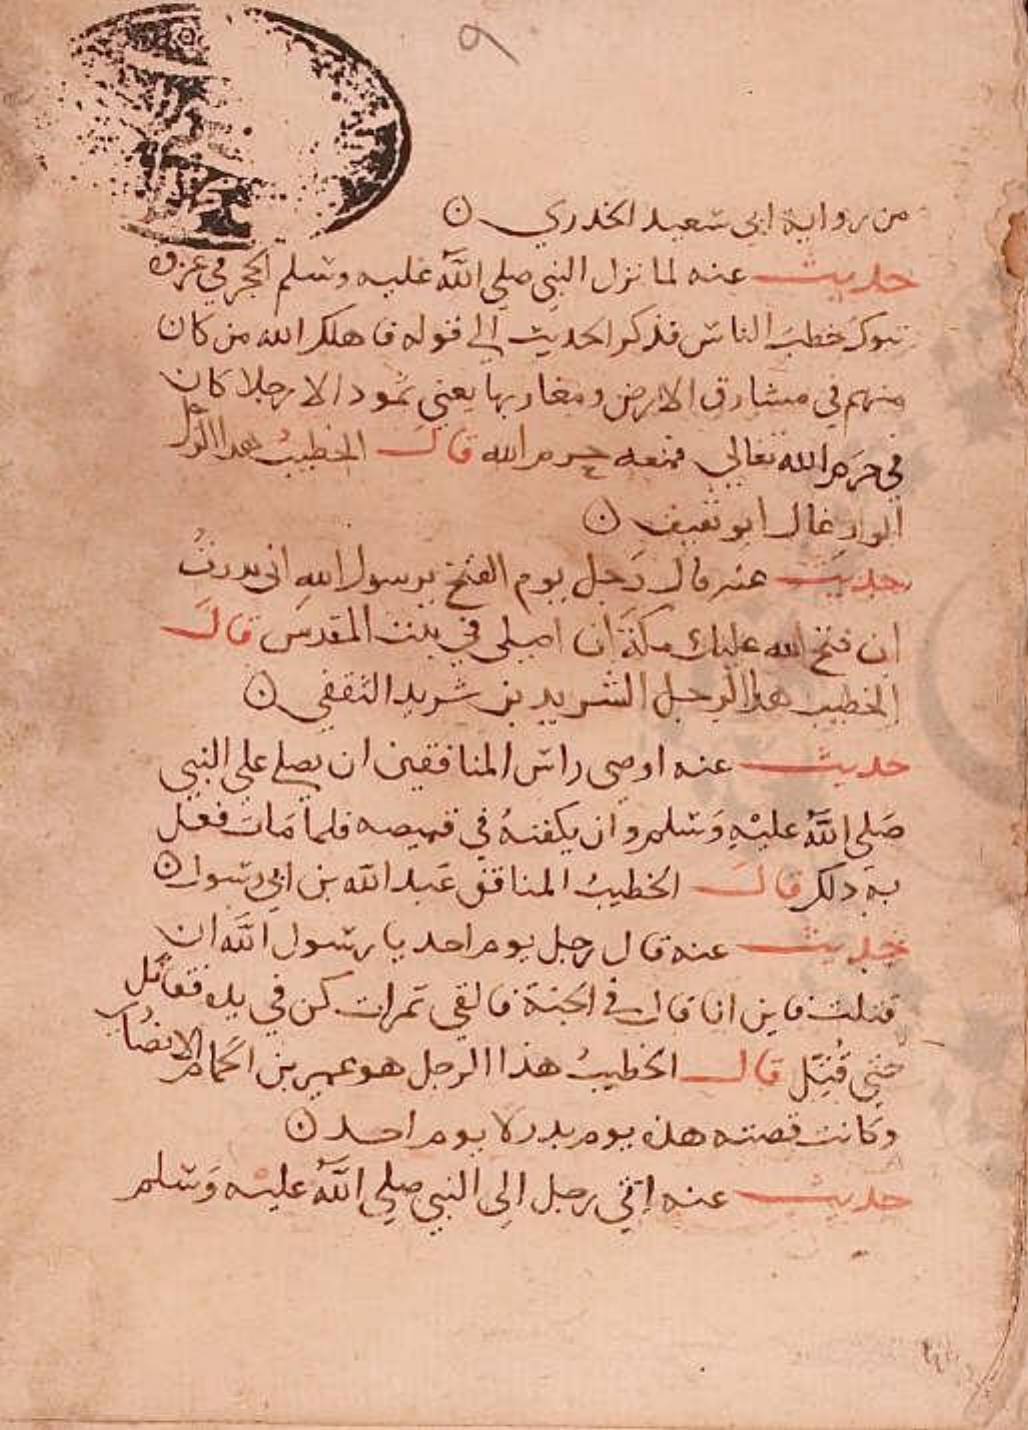 ٩
من رواية ابي سعيد الخدري ن
حديث عنه لما نزل النبي صلي الله عليه وسلم الحجر في غزوة
تبوك خطب الناس فذكر الحديث الي قوله فاهلك الله من كان
منهم في مشارق الارض ومغاربها يعني ثمود الا رجلا كان
في حرم الله تعالي فمنعه حرم الله قال الخطيب هذا الرجل
ابو رغال ابو ثقيف ن
حديث عنه قال رجل يوم الفتح يرسول الله اني نذرت
ان فتح الله عليك مكة ان اصلي في بيت المقدس قال
الخطيب هذا الرجل الشريد بن شريد الثقفي ن
حديث عنه اوصي راس المنافقين ان يصلي علي النبي
صلي الله عليه وسلم وان يكفنه في قميصه فلما مات فعل
به ذلك قال الخطيب المنافق عبد الله بن ابي سول ن
حديث عنه قال رجل يوم احد يا رسول الله ان
قتلت فاين انا قال في الجنة فالقي تمرات كن في يده فقاتل
حتي قتل قال الخطيب هذا الرجل هو عمير بن الحمام الانصاري
وكانت قصته هذه يوم بدر لا يوم احد ن
حديث عنه اتي رجل الى النبي صلي الله عليه وسلم